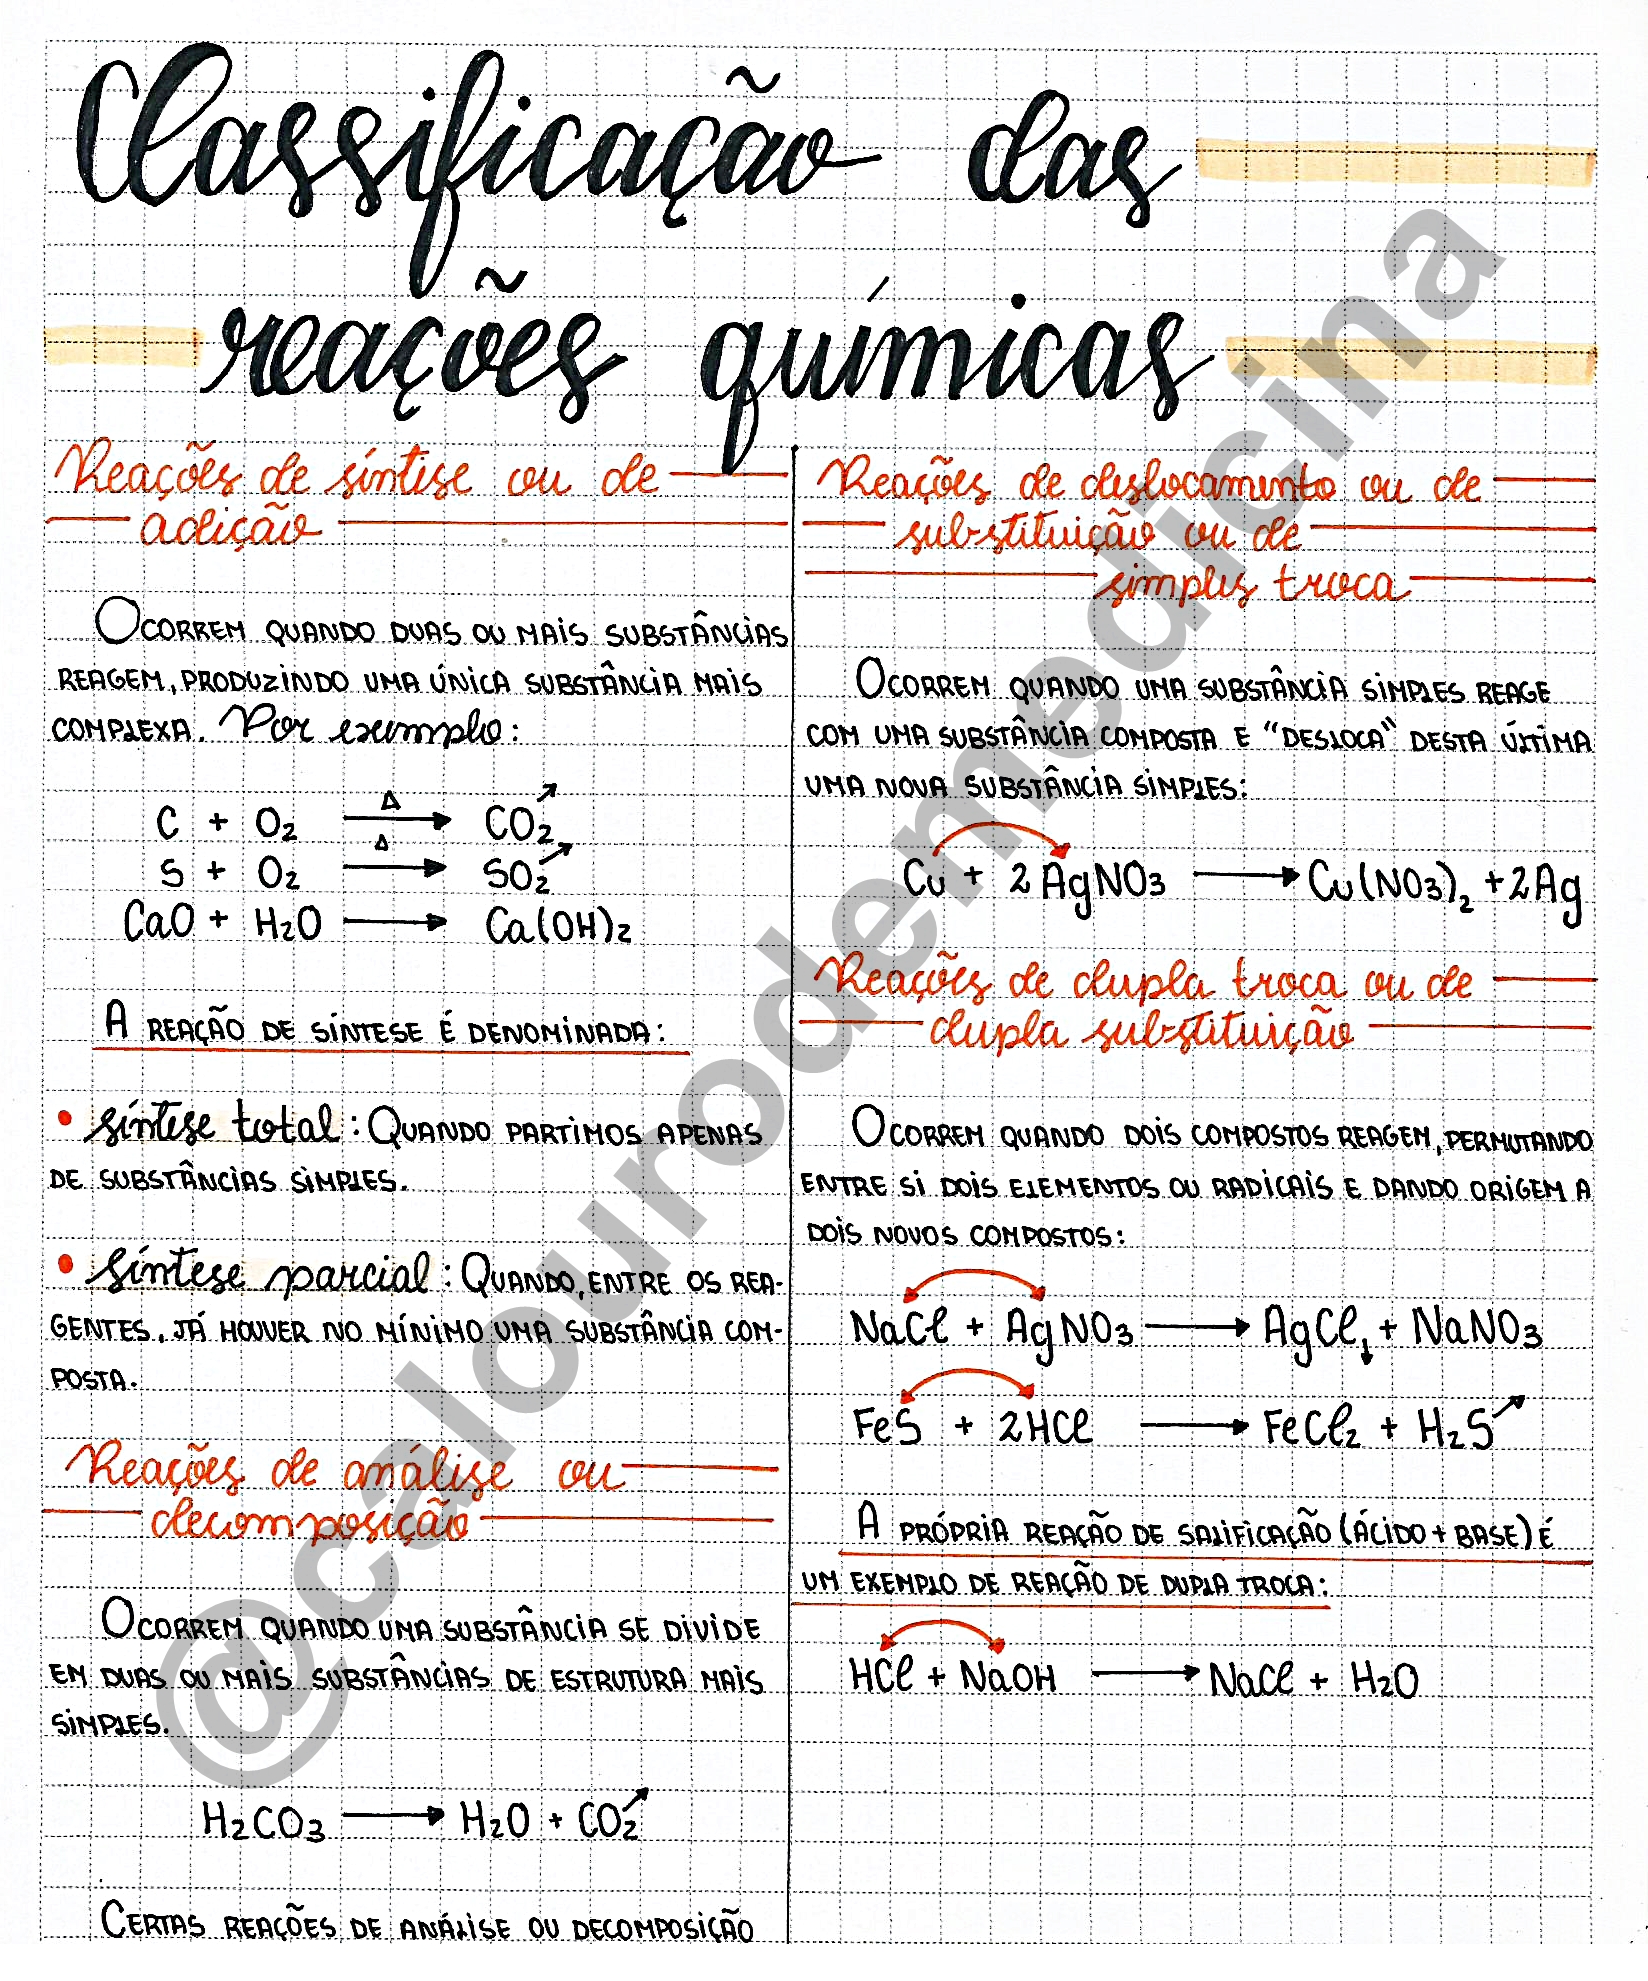 Classificação das
reações químicas
Reações de síntise ou de
adição
Ocorrem quando duas ou mais substâncias
reagem, produzindo uma única substância mais
complexa. Por exemplo:
C + O₂ →Δ CO₂↗
S + O₂ →Δ SO₂↗
CaO + H₂O → Ca(OH)₂
A reação de síntese é denominada:
• síntese total: Quando partimos apenas
de substâncias simples.
• síntese parcial: Quando, entre os rea-
gentes, já houver no mínimo uma substância com-
posta.
Reações de análise ou
decomposição
Ocorrem quando uma substância se divide
em duas ou mais substâncias de estrutura mais
simples.
H₂CO₃ → H₂O + CO₂↗
Certas reações de análise ou decomposição
Reações de deslocamento ou de
substituição ou de
simples troca
Ocorrem quando uma substância simples reage
com uma substância composta e "desloca" desta última
uma nova substância simples:
Cu + 2AgNO₃ → Cu(NO₃)₂ + 2Ag
Reações de dupla troca ou de
dupla substituição
Ocorrem quando dois compostos reagem, permutando
entre si dois elementos ou radicais e dando origem a
dois novos compostos:
NaCl + AgNO₃ → AgCl↓ + NaNO₃
FeS + 2HCl → FeCl₂ + H₂S↗
A própria reação de salificação (ácido + base) é
um exemplo de reação de dupla troca:
HCl + NaOH → NaCl + H₂O
@calourodemedicina